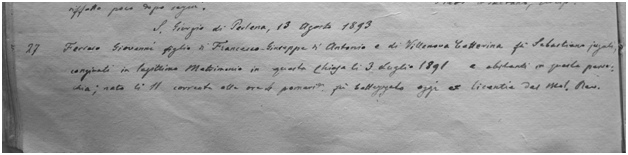 S. Giorgio di Perlena, 13 Agosto 1893
27 Ferraro Giovanni figlio di Francesco-Giuseppe di Antonio e di Villanova Catterina fu Sebastiano jugali,
congiunti in legittimo Matrimonio in questa Chiesa li 3 Luglio 1891 e abitanti in questa parroc-
chia; nato li 11 corrente alle ore 4 fu battezzato oggi ex licentia del Mol. Rev.